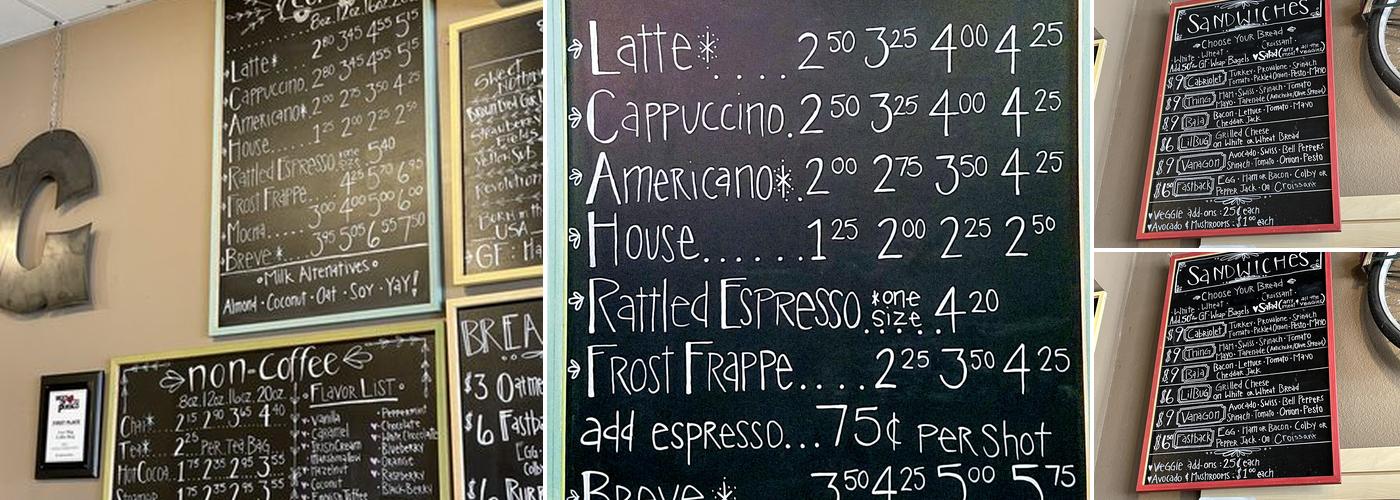 8oz. 12oz. 16oz. 20oz.
Latte* 2 80 3 45 4 55 5 15
Cappuccino. 2 80 3 45 4 55 5 15
Americano* 2 00 2 75 3 50 4 25
House. 1 25 2 00 2 25 2 50
Rattled Espresso *one size 5 40
Frost Frappe.. 4 25 5 70 6 95
Mocha 3 00 4 00 5 00 6 00
Breve * 3 95 5 05 6 55 7 50
Milk Alternatives
Almond · Coconut · Oat · Soy · YAY!
G
non-coffee
8oz. 12oz. 16oz. 20oz
Chai* 2 15 2 90 3 65 4 40
Tea* 2 25 Per Tea Bag
Hot Cocoa. 1 75 2 35 2 95 3 55
Flavor List
Vanilla
Caramel
Irish Cream
Marshmallow
Hazelnut
Coconut
English Toffee
Peppermint
Chocolate
White Chocolate
Blueberry
Orange
Raspberry
Blackberry
Sweet
Strawberry
Revolution
USA
GF: Ha
BREA
$3 Oatme
$6 Fastba
Egg
Colby
$6 Burr
Latte*..... 2 50 3 25 4 00 4 25
Cappuccino. 2 50 3 25 4 00 4 25
Americano*. 2 00 2 75 3 50 4 25
House...... 1 25 2 00 2 25 2 50
Rattled Espresso. *one size. 4 20
Frost Frappe.... 2 25 3 50 4 25
add espresso...75¢ per shot
Breve* 3 50 4 25 5 00 5 75
SANDWICHES
Choose Your Bread
White · Wheat · Croissant
Add 50¢ GF Wrap · Bagels ♥Salad (any meat & all the veggies)
$9 Cabriolet Turkey · Provolone · Spinach
Tomato · Pickled Onion · Pesto · Mayo
$9 Thing Ham · Swiss · Spinach · Tomato
Mayo · Tapenade (Artichoke/Olive Spread)
$9 Baja Bacon · Lettuce · Tomato · Mayo
Cheddar Jack
$6 Lil Bug Grilled Cheese
on White or Wheat Bread
$9 Vanagon Avocado · Swiss · Bell Peppers
Spinach · Tomato · Onion · Pesto
$6 50 Fastback Egg · Ham or Bacon · Colby or
Pepper Jack · On Croissant
♥Veggie add-ons: 25¢ each
♥Avocado & Mushrooms: $1 00 each
SANDWICHES
Choose Your Bread
White · Wheat · Croissant
Add 50¢ GF Wrap · Bagels ♥Salad (any meat & all the veggies)
$9 Cabriolet Turkey · Provolone · Spinach
Tomato · Pickled Onion · Pesto · Mayo
$9 Thing Ham · Swiss · Spinach · Tomato
Mayo · Tapenade (Artichoke/Olive Spread)
$9 Baja Bacon · Lettuce · Tomato · Mayo
Cheddar Jack
$6 Lil Bug Grilled Cheese
on White or Wheat Bread
$9 Vanagon Avocado · Swiss · Bell Peppers
Spinach · Tomato · Onion · Pesto
$6 50 Fastback Egg · Ham or Bacon · Colby or
Pepper Jack · On Croissant
♥Veggie add-ons: 25¢ each
♥Avocado & Mushrooms: $1 00 each